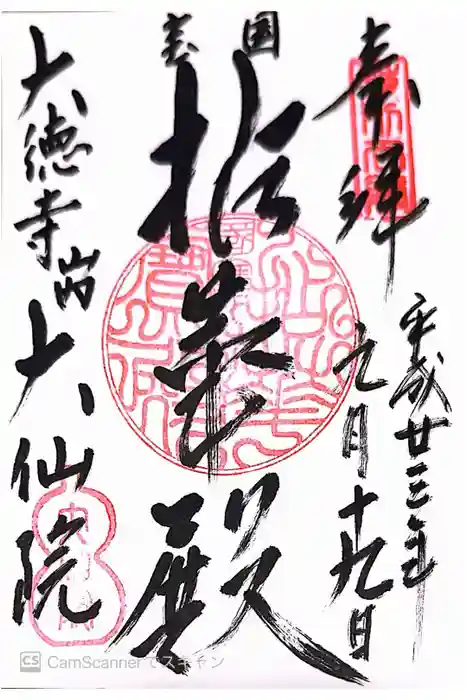 奉拝
平成廿三年
九月十九日
国宝
拈華殿
大徳寺山内
大仙院
CS CamScannerでスキャン